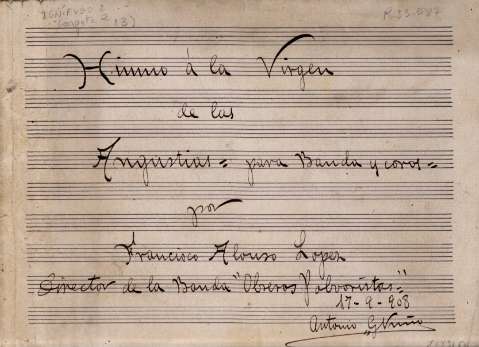 Himno á la Virgen
de las
Angustias = para Banda y coros =
por
Francisco Alonso Lopez
Director de la Banda "Obreros Polvoristas ="
17-9-908
Antonio